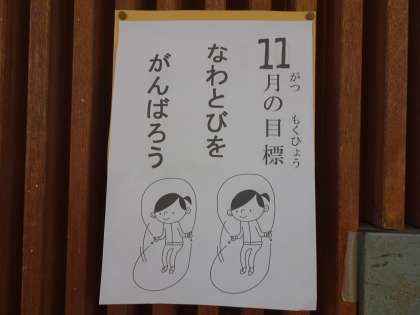 11月の目標
がつ もくひょう
なわとびを
がんばろう